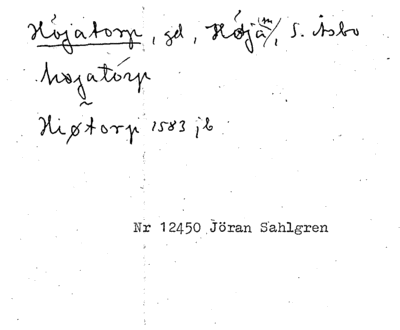 Höjatorp, gd, Höja, S. Åsbo
hojatórp
Hiøtorp 1583 jb
Nr 12450 Jöran Sahlgren